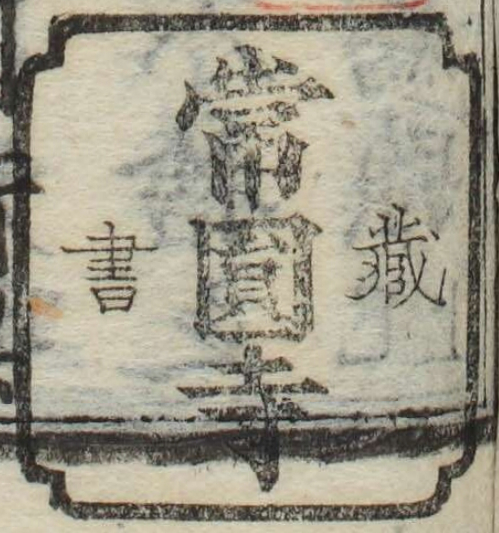 常圓寺
藏書